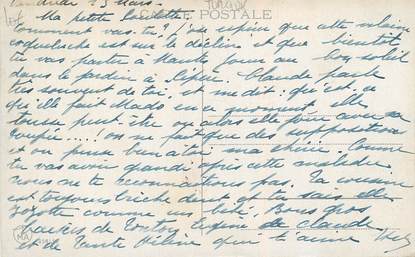 Vendredi 23 Mars.
CARTE POSTALE
Ma petite Colette
Comment vas-tu? J'espère que cette vilaine
coqueluche est sur le déclin et que bientôt
tu vas partir à jouer au bon soleil
dans le jardin à Claude parle
très souvent de toi, et me dit: qu'est, ce
qu'elle fait Mado en ce moment, elle
tousse peut-être ou alors elle joue avec sa
poupée..... on ne fait que des suppositions
et on pense bien à toi ma chérie. Comme
tu vas avoir grandi après cette maladie
nous ne te reconnaîtrons pas. Ta cousine
est toujours et tu sais elle
zozotte comme un bébé. Bons gros
baisers de Tonton de Claude
et de Tante Hélène qui t'aime